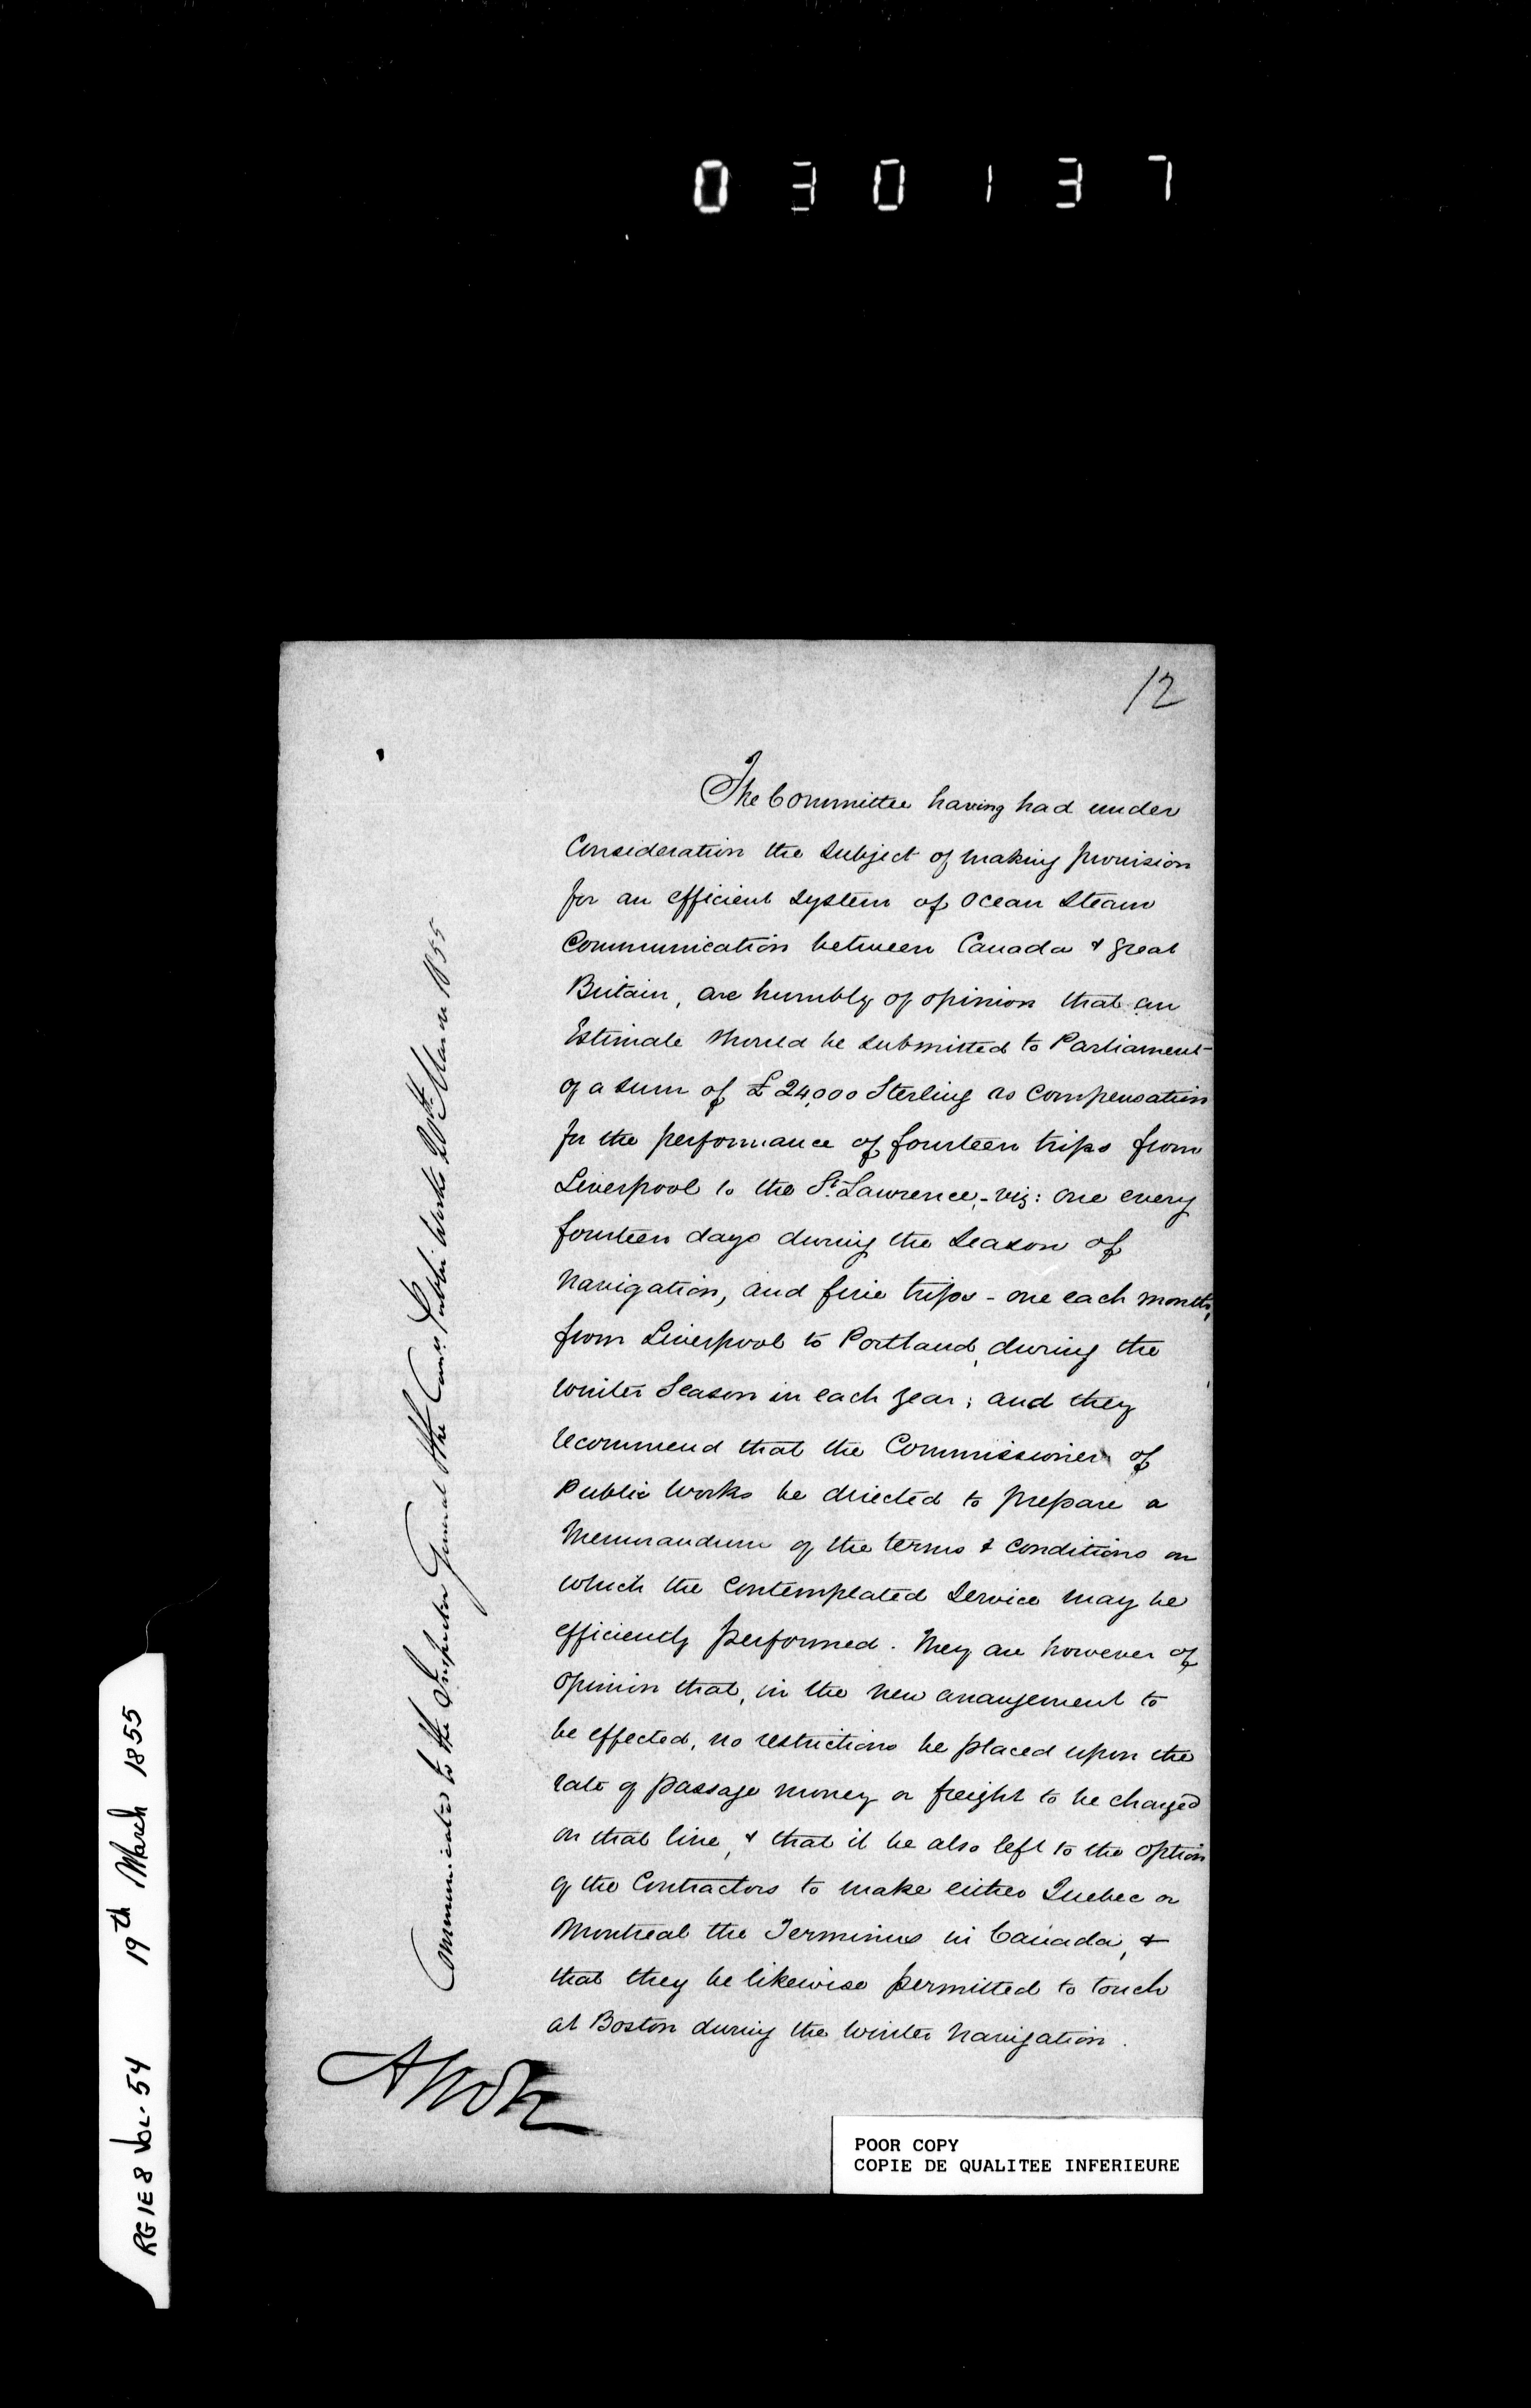 030137
12
The Committee having had under
Consideration the subject of making provision
for an efficient system of Ocean Steam
Communication between Canada & Great
Britain, are humbly of opinion that an
Estimate should be submitted to Parliament
of a sum of £24,000 Sterling as compensation
for the performance of fourteen trips from
Liverpool to the St. Lawrence, - viz: one every
fourteen days during the Season of
Navigation, and five trips - one each month,
from Liverpool to Portland, during the
Winter Season in each year; and they
recommend that the Commissioner of
Public Works be directed to prepare a
Memorandum of the terms & conditions on
which the contemplated Service may be
efficiently performed. They are however of
opinion that, in the new arrangement to
be effected, no restrictions be placed upon the
rate of passage money or freight to be charged
on that line, & that it be also left to the option
of the Contractors to make either Quebec or
Montreal the Terminus in Canada, &
that they be likewise permitted to touch
at Boston during the Winter Navigation.
Communicated to the Inspector General & the Comrs Public Works 20th March 1855
RG 1 E 8 Vol. 54 19th March 1855
POOR COPY
COPIE DE QUALITEE INFERIEURE